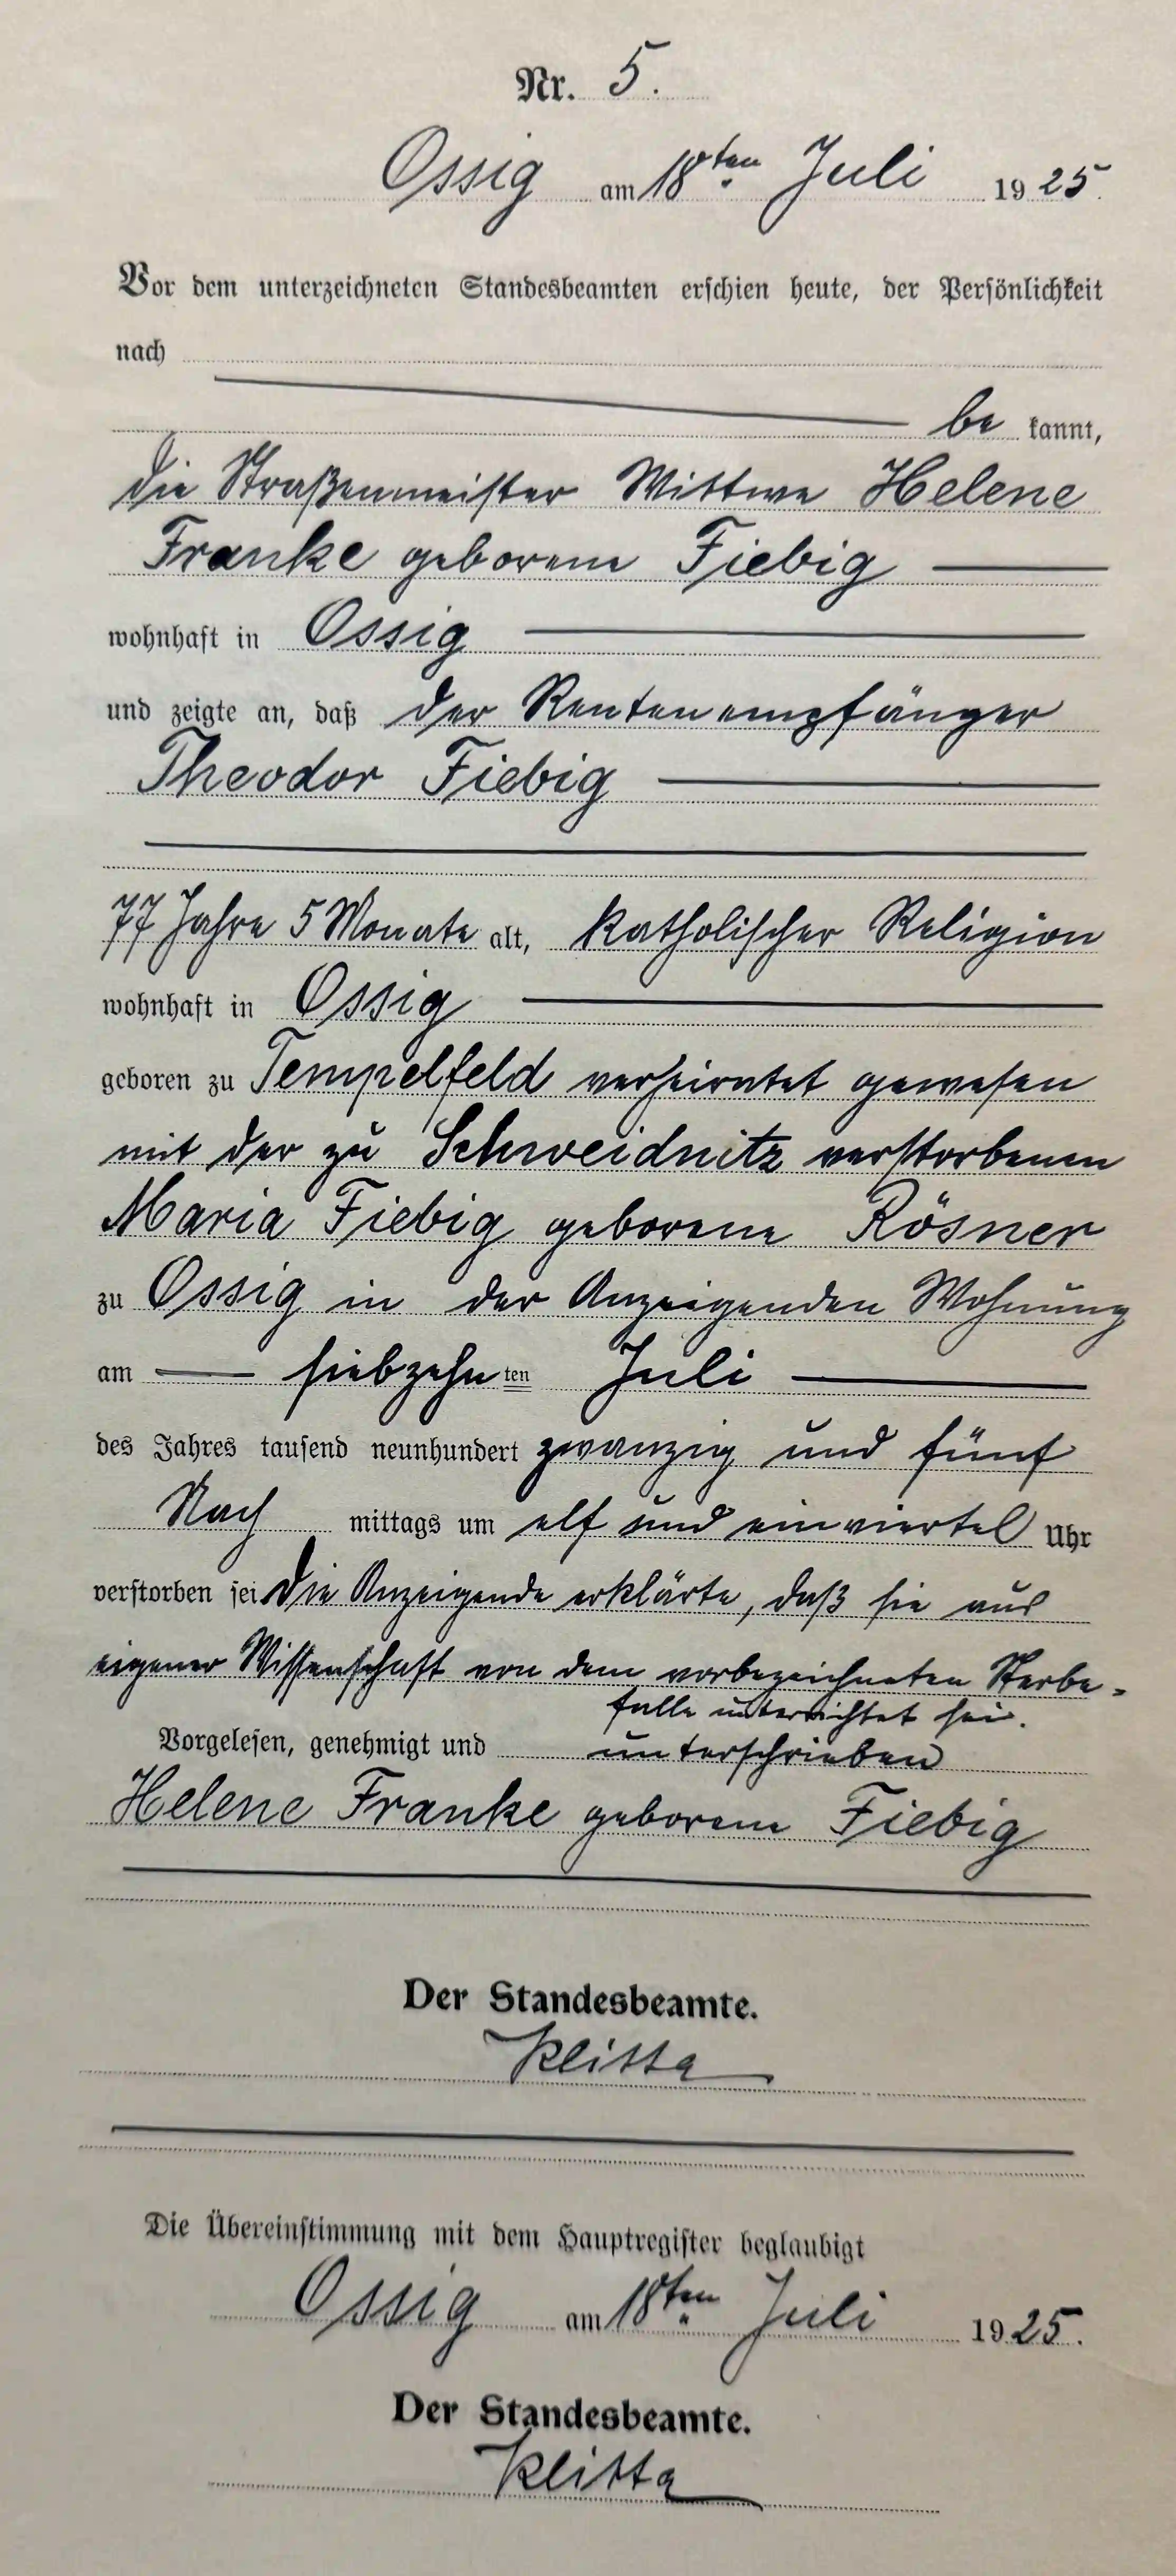 Nr. 5.
Ossig am 18ten Juli 1925.
Vor dem unterzeichneten Standesbeamten erschien heute, der Persönlichkeit
nach
be kannt,
die Straßenmeister Wittwe Helene
Franke geborene Fiebig
wohnhaft in Ossig
und zeigte an, daß der Rentenempfänger
Theodor Fiebig
77 Jahre 5 Monate alt, katholischer Religion
wohnhaft in Ossig
geboren zu Tempelfeld verheiratet gewesen
mit der zu Schweidnitz verstorbenen
Maria Fiebig geborene Rösner
zu Ossig in der Anzeigenden Wohnung
am siebzehnten Juli
des Jahres tausend neunhundert zwanzig und fünf
Nach mittags um elf und einviertel Uhr
verstorben sei. Die Anzeigende erklärte, daß sie aus
eigener Wissenschaft von dem vorbezeichneten Sterbe-
falle unterrichtet sei.
Vorgelesen, genehmigt und unterschrieben
Helene Franke geborene Fiebig
Der Standesbeamte.
Die Übereinstimmung mit dem Hauptregister beglaubigt
Ossig am 18ten Juli 1925.
Der Standesbeamte.